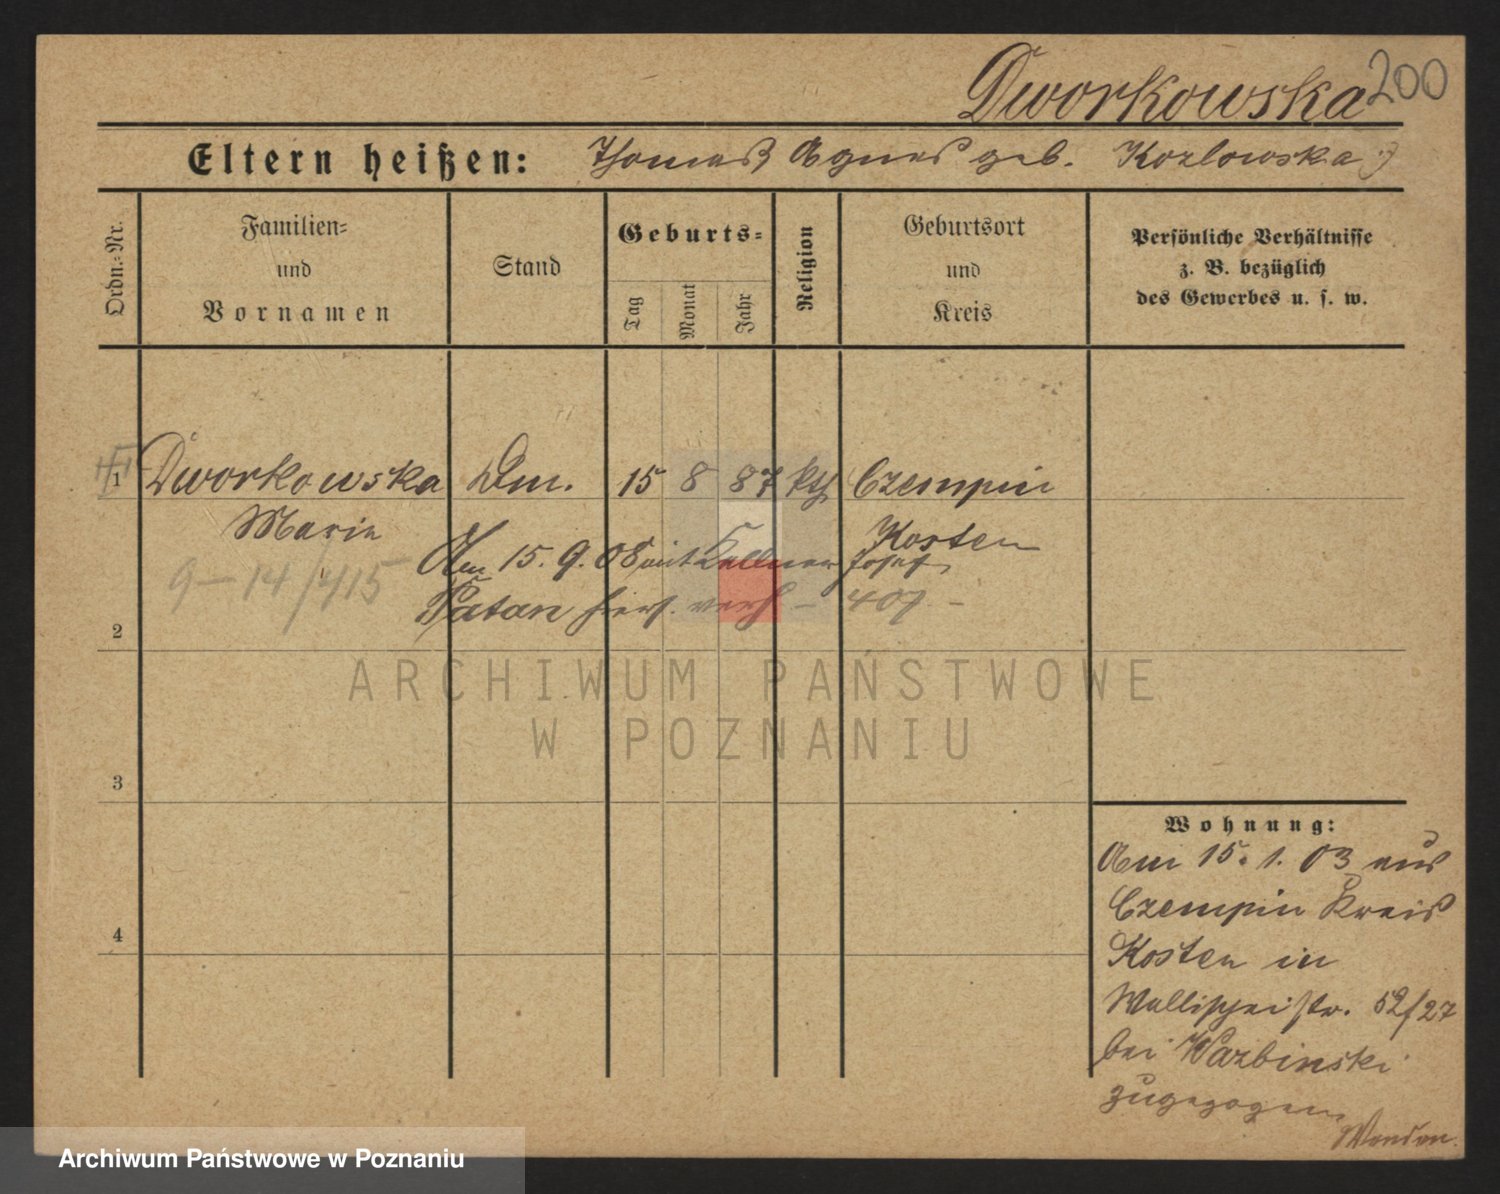 Dworkowska 200
Eltern heißen: Thomas Agnes geb. Kozlowska
Ordn.-Nr.
Familien-
und
Vornamen
Stand
Geburts-
Tag
Monat
Jahr
Religion
Geburtsort
und
Kreis
Persönliche Verhältnisse
z. B. bezüglich
des Gewerbes u. s. w.
1 Dworkowska 15 8 87 kth Czempin
Maria Kosten
Am 15. 9. 08 mit Kellner Josef
Patan hier verh – 407 –
9–14/415
2
3
4
Wohnung:
Am 15. 1. 03 aus
Czempin Kreis
Kosten in
Wallischeistr. 52/27
bei Warbinski
zugezogen
ARCHIWUM PAŃSTWOWE
W POZNANIU
Archiwum Państwowe w Poznaniu